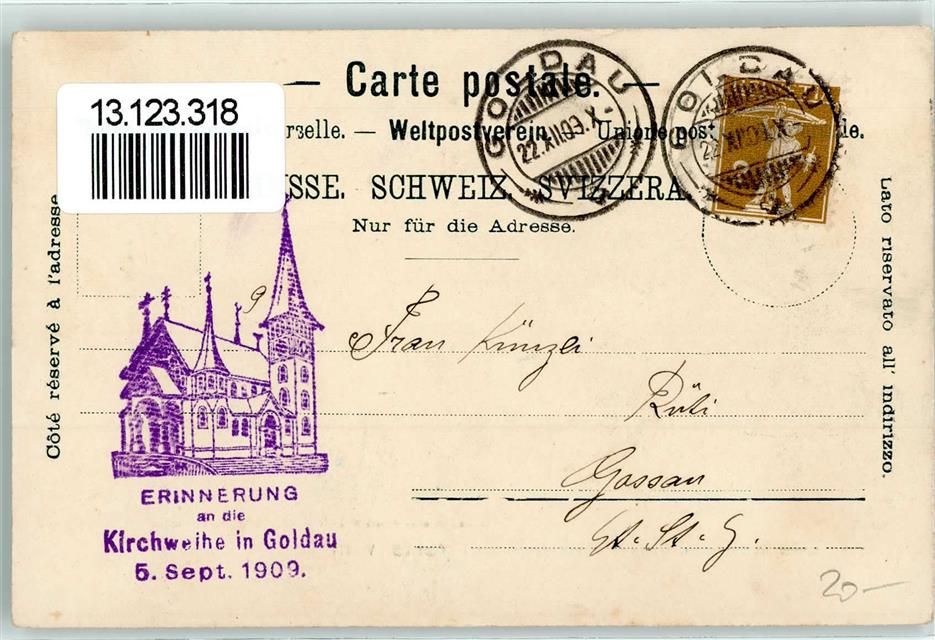 13.123.318
— Carte postale. —
rselle. — Weltpostverein. Unione post le.
ISSE. SCHWEIZ. SVIZZERA.
Nur für die Adresse.
GOLDAU
22.XII.09.X-
GOLDAU
22.XII.09.X
Côté réservé à l'adresse
Lato riservato all' indirizzo.
9
Frau Künzli
Rüti
Gossau
Ct. St. G.
ERINNERUNG
an die
Kirchweihe in Goldau
5. Sept. 1909.
20—